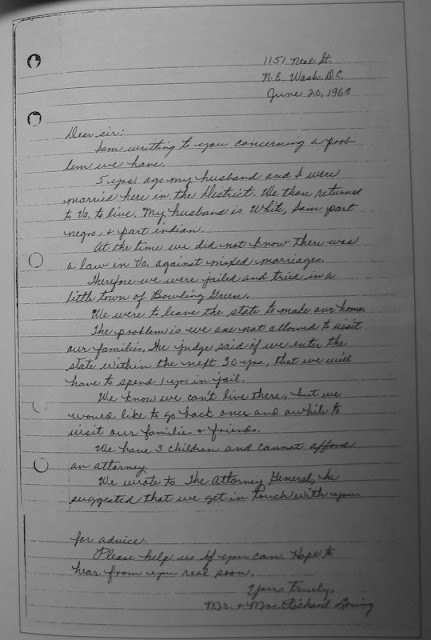 1151 Neal St.
N.E. Wash. D.C.
June 20, 1963
Dear sir:
I am writting to you concerning a prob-
lem we have.
5 yrs. ago my husband and I were
married here in the District. We then returned
to Va. to live. My husband is White, I am part
negro, & part indian.
At the time we did not know there was
a law in Va. against mixed marriages.
Therefore we were jailed and tried in a
little town of Bowling Green.
We were to leave the state to make our home.
The problem is we are not allowed to visit
our families. The judge said if we enter the
state within the next 30 yrs., that we will
have to spend 1 yr. in jail.
We know we can't live there, but we
would like to go back once and awhile to
visit our families & friends.
We have 3 children and cannot afford
an attorney.
We wrote to the Attorney General, he
suggested that we get in touch with you
for advice.
Please help us if you can. Hope to
hear from you real soon.
Yours truely,
Mr. & Mrs. Richard Loving